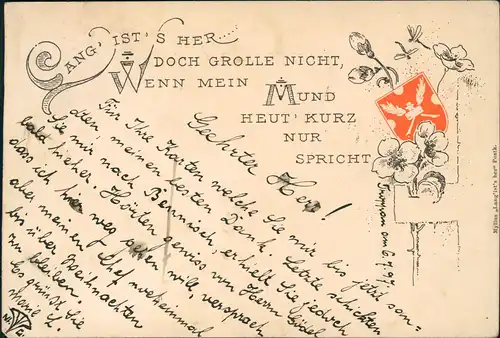 LANG' IST'S HER...
DOCH GROLLE NICHT,
WENN MEIN MUND
HEUT' KURZ
NUR
SPRICHT
Geehrter Herr!
Für Ihre Karten welche Sie mir bis jetzt san-
dten, meinen besten Dank. Letzte schickten
Sie mir nach Bennisch, erhielt Sie jedoch
bald hieher. Hörten gewiss von Herrn
dass ich hier was sehen will, versprach
aber meinem Chef nocheinmal
bis über Weihnachten
zu bleiben.
Es grüsst Sie
Marie L.
Troppau am 6.7.97.